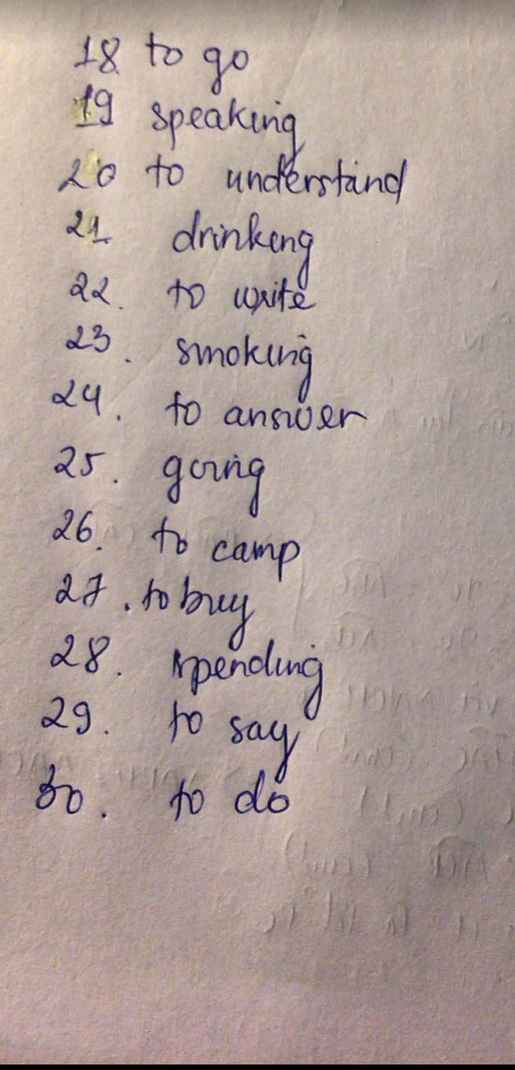 18. to go
19 speaking
20 to understand
21 drinking
22. to write
23. smoking
24. to answer
25. going
26. to camp
27. to buy
28. spending
29. to say
30. to do